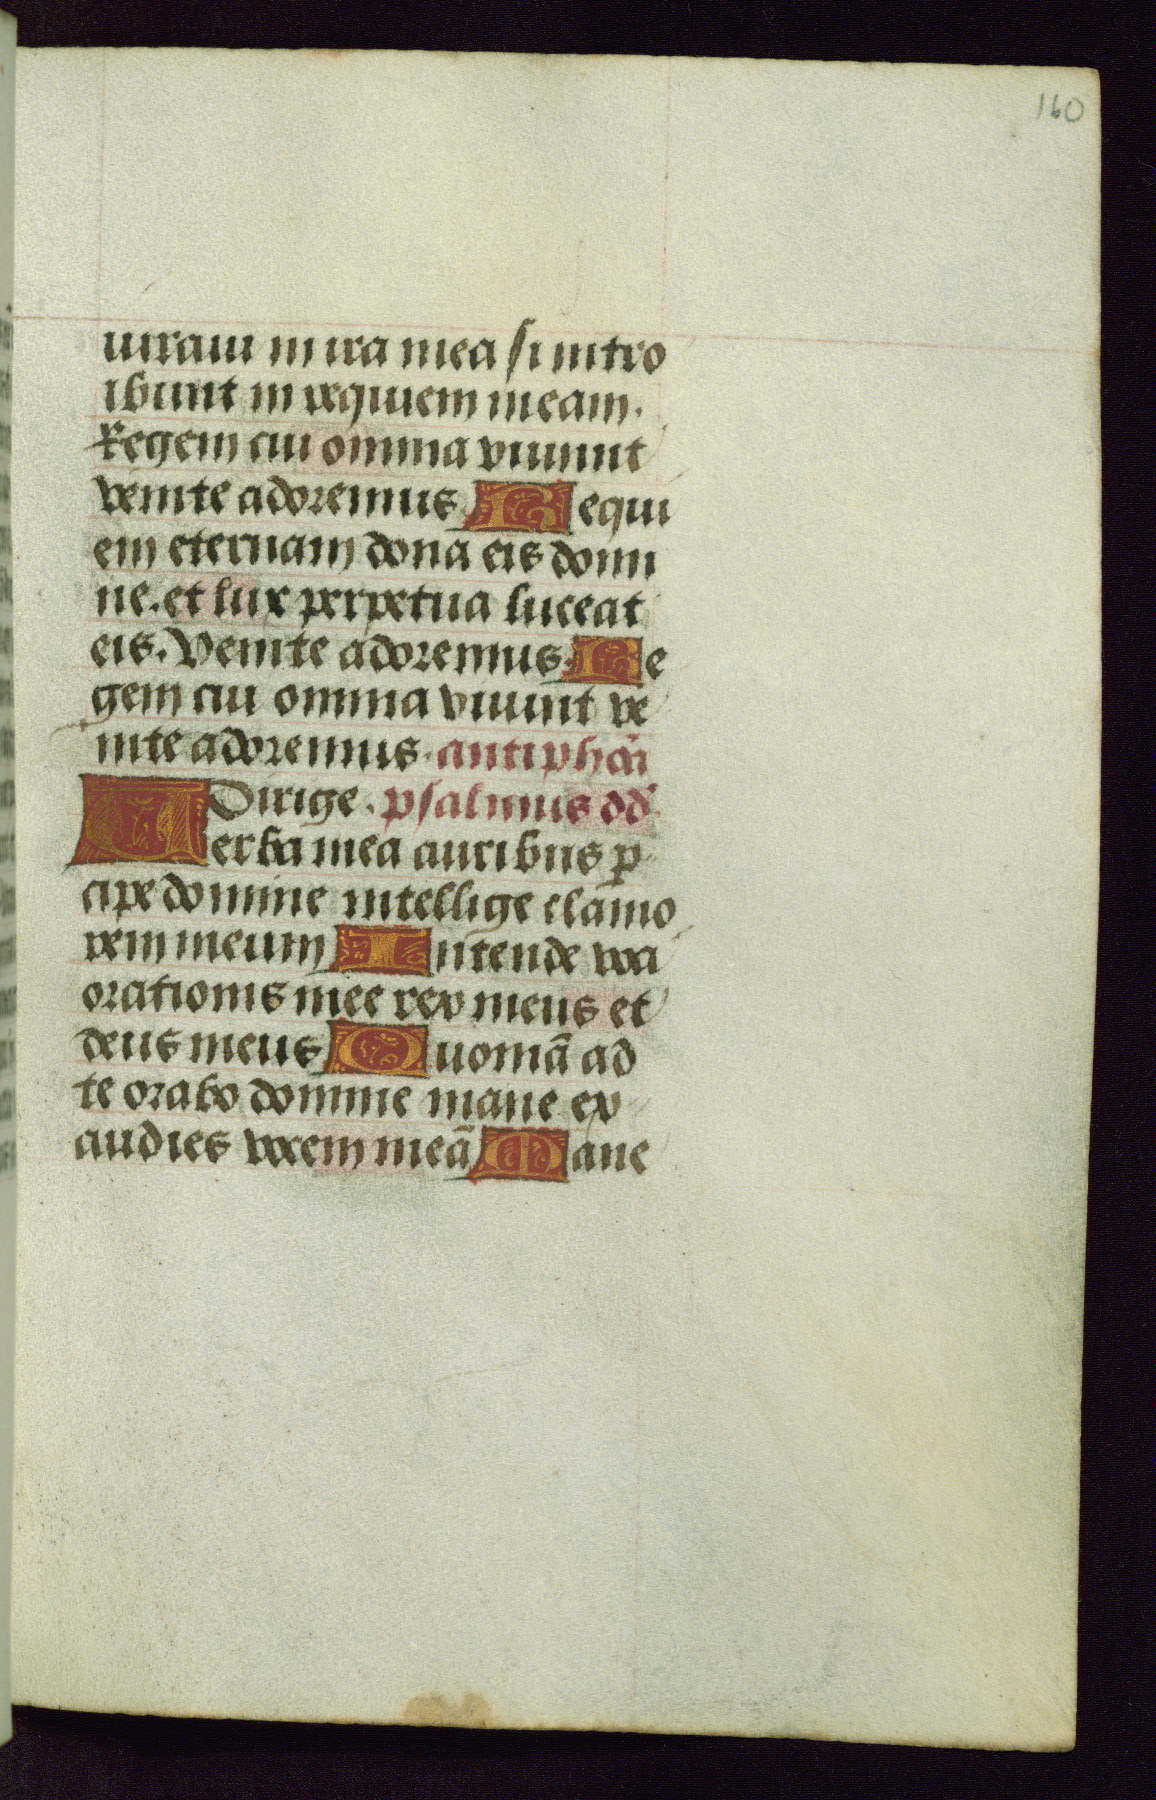 160
iuraui in ira mea si intro
ibunt in requiem meam.
Regem cui omnia viuunt
venite adoremus. Requi
em eternam dona eis domi
ne. et lux perpetua luceat
eis. Venite adoremus. Re
gem cui omnia viuunt ve
nite adoremus. antiphōā
Dirige. psalmus dd̄
Verba mea auribus ꝑ
cipe domine intellige clamo
rem meum Intende voci
orationis mee rex meus et
deus meus Quoniā ad
te orabo domine mane ex
audies vocem meā Mane